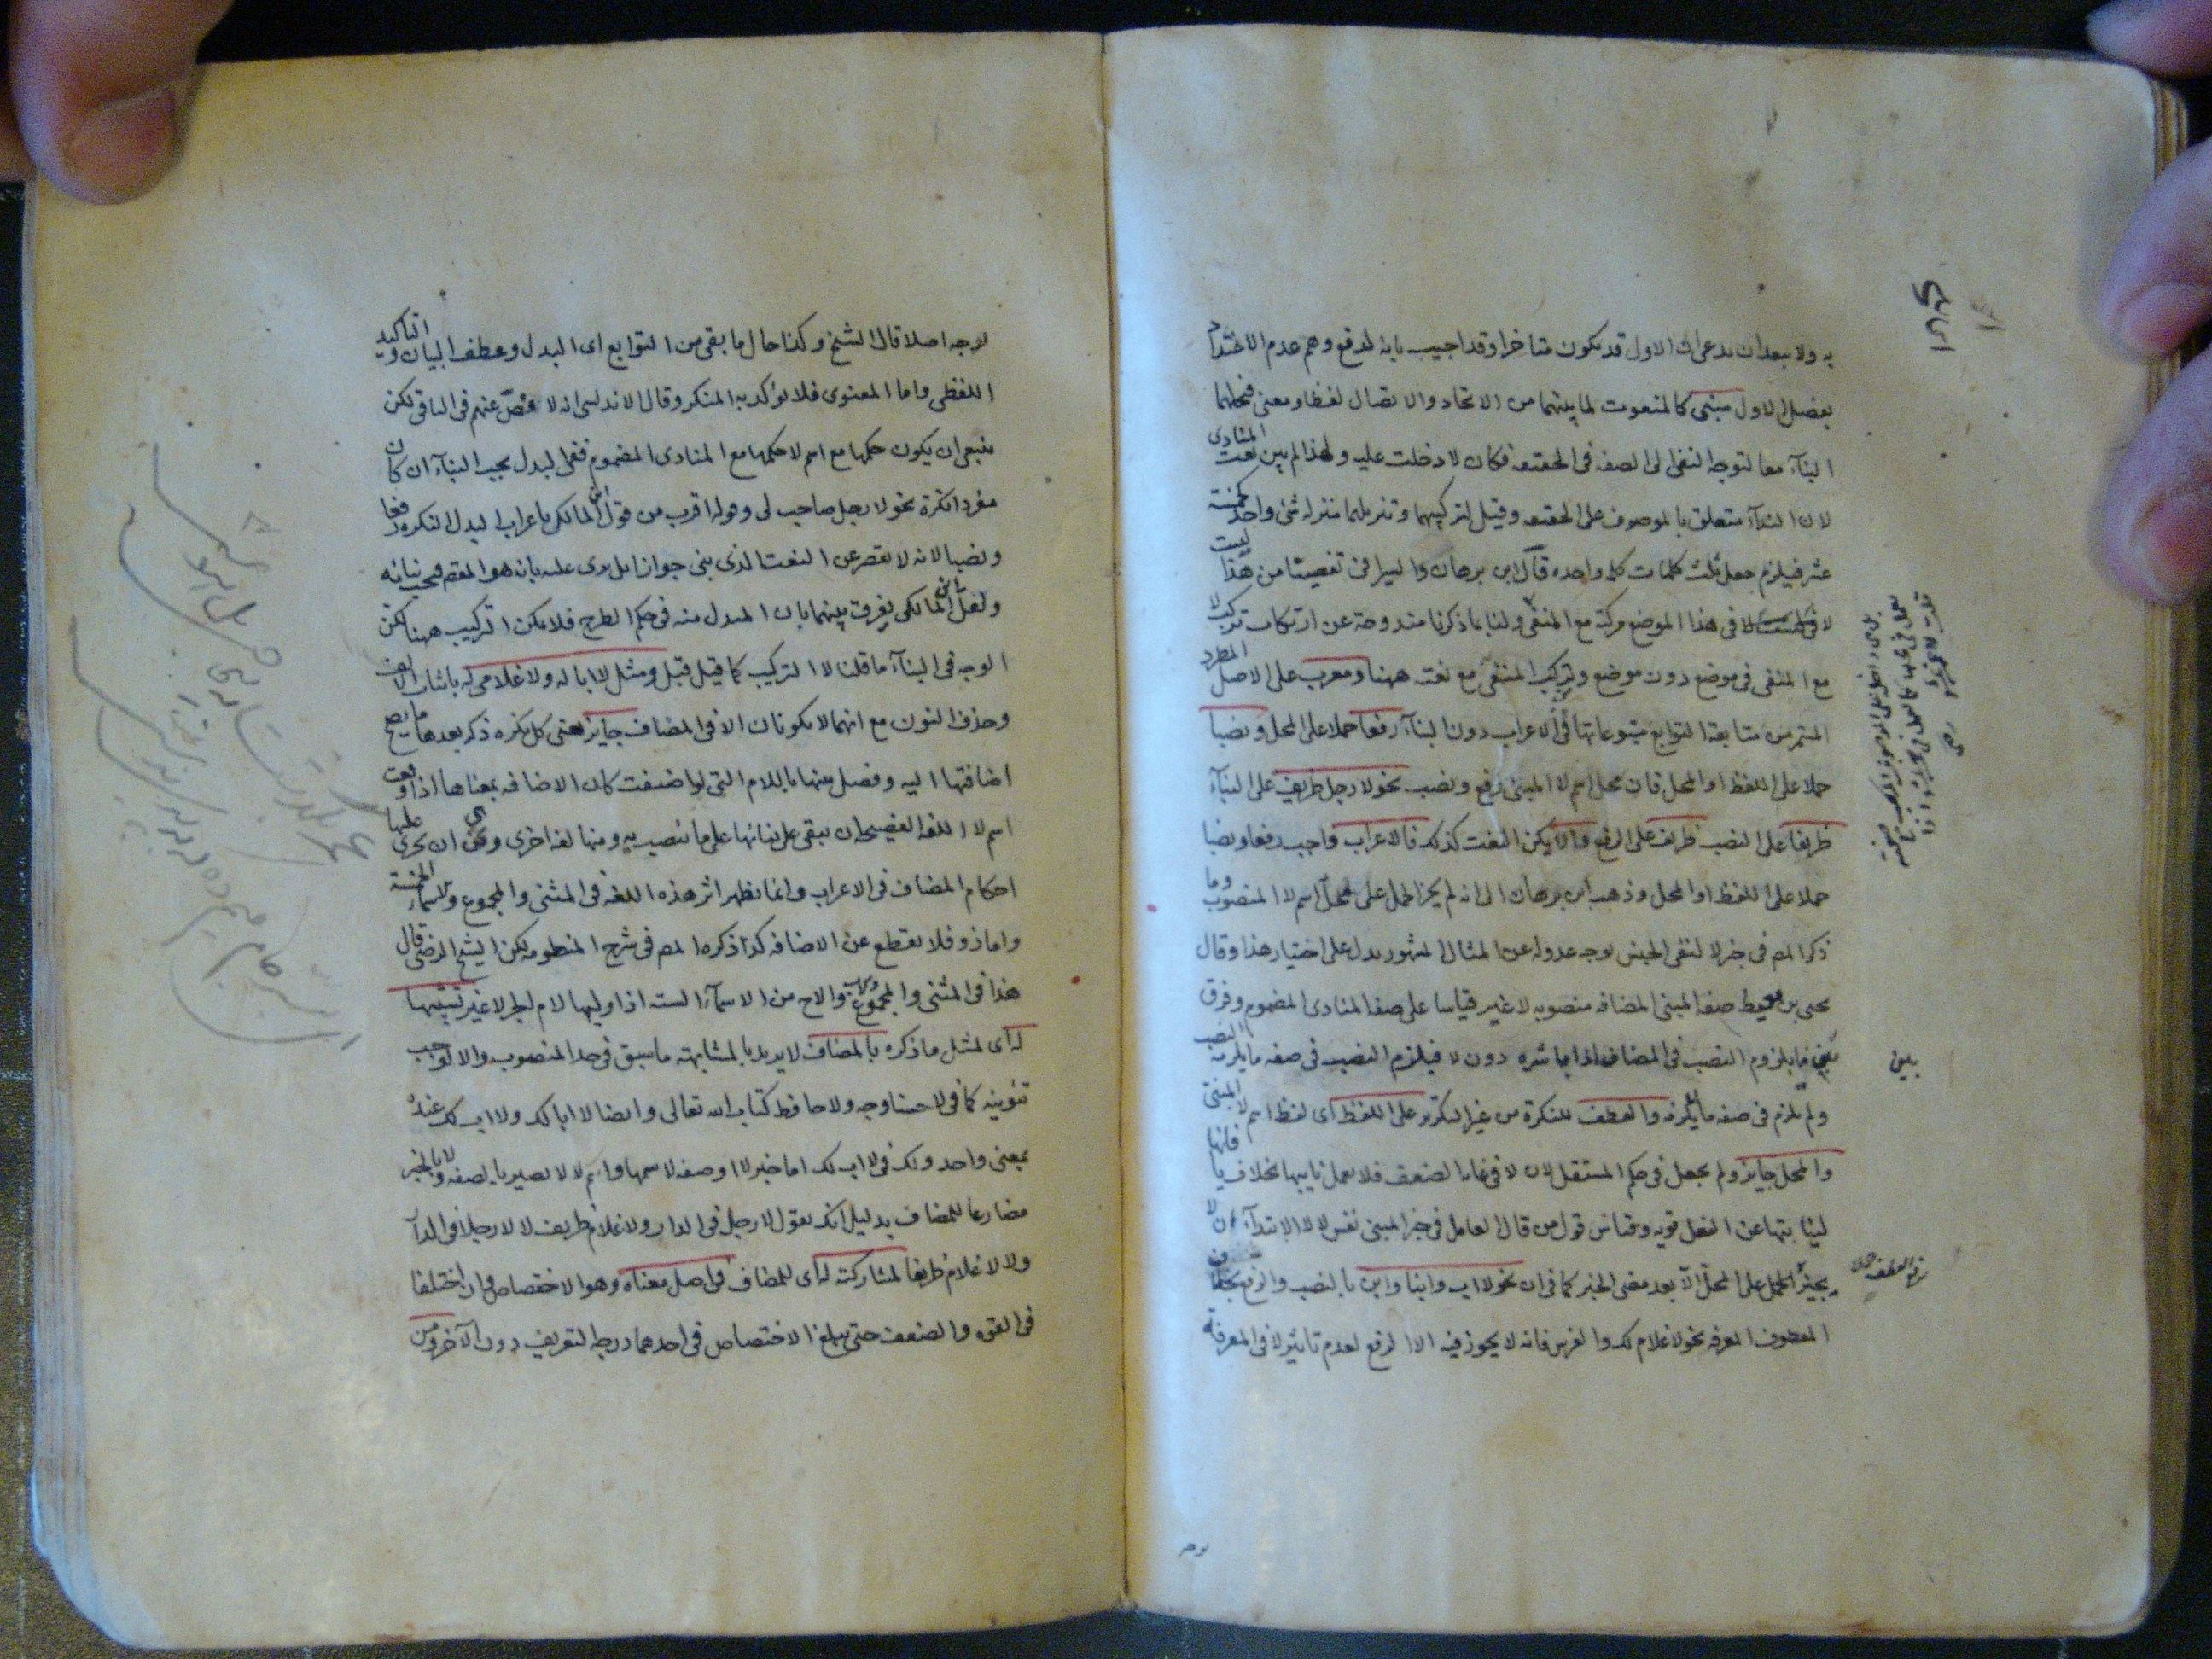 به ولا يبعد ان يدعى ان الاول قد يكون متاخرا وقد اجيب بانه لدفع وهم عدم الاعتداد
بفضل الاول مبنى كالمنعوت لما بينهما من الاتحاد والاتصال لفظا ومعنى فكلهما
البناء معا لتوجه النفى الى الصفه فى الحقيقه فكان لا دخلت عليه ولهذا لم يبن نعت المنادى
لان النداء متعلق بالموصوف على الحقيقه وقيل لتركيبهما وتنزيلهما منزله شئ واحد كخمسة
عشر فيلزم جعل ثلث كلمات كلمه واحده قال ابن برهان من هذا ليست
لا فى هذا الموضع مركبة مع المنفى ولنا بما ذكرنا مندوحة عن ارتكاب تركيب لا
مع المنفى فى موضع دون موضع وتركيب المنفى مع نعته ههنا ومعرب على الاصل المطرد
المستمر من متابعة التوابع متبوعاتها فى الاعراب دون البناء رفعا حملا على المحل ونصبا
حملا على اللفظ او المحل فان محل اسم لا المبنى رفع ونصب نحو لا رجل ظريف على البناء
ظريفا على النصب ظريف على الرفع والا يكن النعت كذلك فالاعراب واجب رفعا ونصبا
حملا على اللفظ او المحل وذهب ابن برهان الى انه لم يجز الحمل على محل اسم لا المنصوب وما
ذكر المص فى خبر لا لنفى الجنس لوجه عدوله عن المثال المشهور يدل على اختيار هذا وقال
يحيى بن معيط صفه المبنى المضافه منصوبه لا غير قياسا على صفه المنادى المضموم وفرق
بلزوم النصب فى المضاف اذا باشره دون لا فيلزم النصب فى صفه ما يلزمه النصب
ولم يلزم فى صفه ما لم يلزمه والعطف للنكرة من غير التكرير على اللفظ اى لفظ اسم لا المبنى
والمحل جايز ولم يجعل فى حكم المستقل لان لا فى غايه الضعف فلا يعمل نايبها بخلاف يا فانها
لنيابتها عن الفعل قويه وقياس قول من قال العامل فى خبر المبنى نفس لا لا الابتداء ان لا
يجيز الحمل على المحل الا بعد مضى الخبر كما فى ان نحو لا اب وابنا وابن بالنصب والرفع بخلاف
المعطوف المعرفه نحو لا غلام لك والفرس فانه لا يجوز فيه الا الرفع لعدم تاثير لا فى المعرفة
بين
لوجه
لوجه اصلا قال الشيخ وكذا حال ما بقى من التوابع اى البدل وعطف البيان والتاكيد
اللفظى واما المعنوى فلا يؤكد به المنكر وقال الاندلسى انه لا نص عنهم فى الباقى لكن
ينبغى ان يكون حكمها مع اسم لا حكمها مع المنادى المضموم ففى البدل يجب البناء ان كان
مفردا نكرة نحو لا رجل صاحب لى وقوله اقرب من قول ابن المالكى باعراب البدل النكره رفعا
ونصبا لانه لا يقصر عن النعت الذى بنى جوازا بل يربى عليه بانه هو المقصود فيجب بنائه
ولعل ابن المالكى يفرق بينهما بان المبدل منه فى حكم الطرح فلا يمكن التركيب ههنا لكن
الوجه فى البناء ما قلنا لا التركيب كما قيل قبل ومثل لا ابا له ولا غلامى له باثبات الالف
وحذف النون مع انهما لا يكونان الا فى المضاف جايز يعنى كل نكره ذكر بعدها ما يصح
اضافتها اليه وفصل بينهما باللام التى لو اضيفت كان الاضافه بمعناها اذا وقعت
اسم لا اللغه الفصيحه ان يبقى على بنائها على ما تنصب به ومنها لغه اخرى وهى ان يجرى عليها
احكام المضاف فى الاعراب وانما يظهر اثر هذه اللغه فى المثنى والمجموع والاسماء الخمسة
واما ذو فلا يقطع عن الاضافه كذا ذكره المص فى شرح المنظومه لكن الشيخ الرضى قال
هذا فى المثنى والمجموع والاب والاخ من الاسماء السته اذا وليها لام الجر لا غير تشبيها
له اى لمثل ما ذكره بالمضاف لا يريد بالمشابهته ما سبق فى حد المنصوب والا لوجب
تنوينه كما فى لا حسنا وجه ولا حافظ كتاب الله تعالى وايضا لا ابا لك ولا اب لك عنده
بمعنى واحد ولك فى لا اب لك اما خبر لا او صفه لاسمها واسم لا لا يصير بالصفه ولا بالخبر
مضارعا للمضاف بدليل انك تقول لا رجل فى الدار ولا غلام ظريف لا لا رجلا فى الدار
ولا لا غلام ظريفا لمشاركته له اى للمضاف فى اصل معناه وهو الاختصاص وان اختلفا
فى القوه والضعف حتى يبلغ الاختصاص فى احدهما درجه التعريف دون الآخر ومن